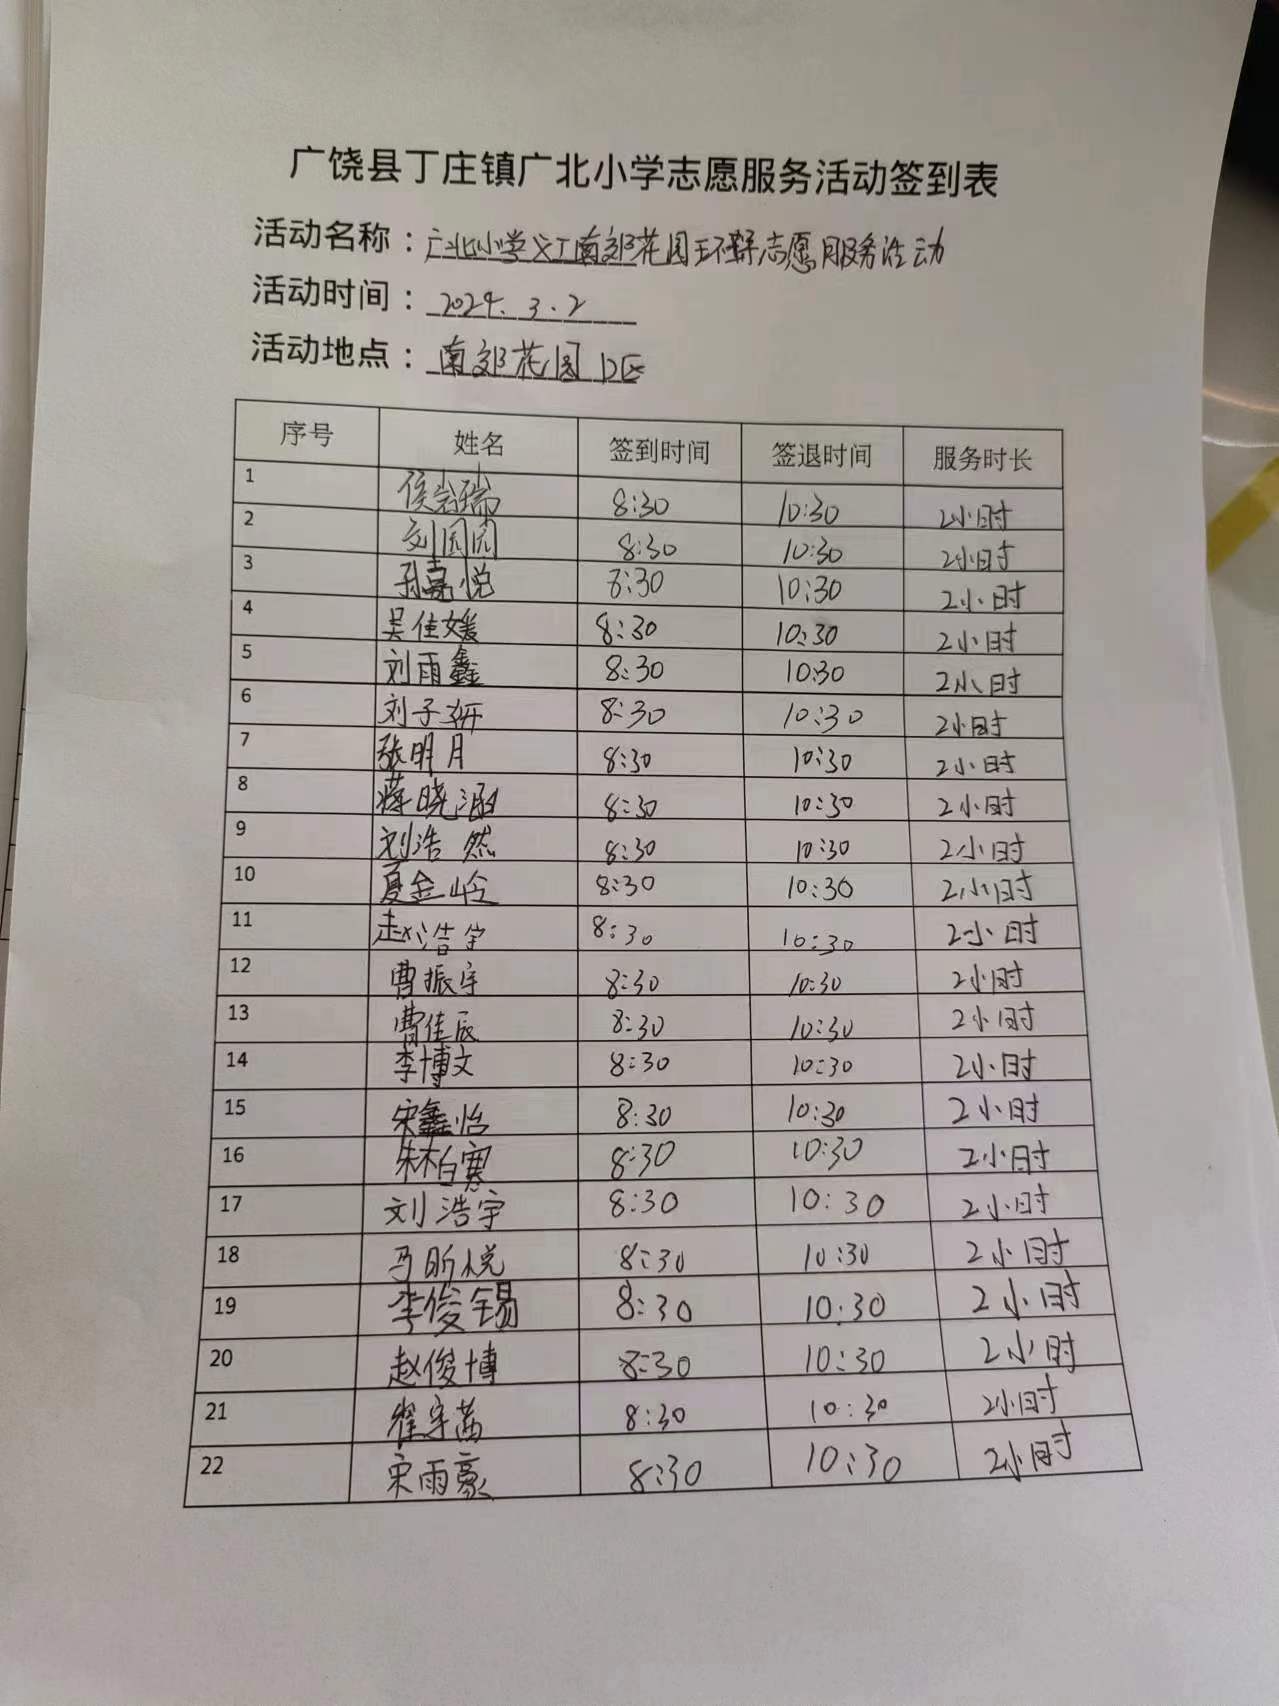 广饶县丁庄镇广北小学志愿服务活动签到表
活动名称：广北小学义工南郊花园环保志愿服务活动
活动时间：2024.3.2
活动地点：南郊花园D区
序号 姓名 签到时间 签退时间 服务时长
1 侯岩瑞 8:30 10:30 2小时
2 刘国园 8:30 10:30 2小时
3 孙嘉悦 8:30 10:30 2小时
4 吴佳媛 8:30 10:30 2小时
5 刘雨鑫 8:30 10:30 2小时
6 刘子妍 8:30 10:30 2小时
7 张明月 8:30 10:30 2小时
8 蒋晓涵 8:30 10:30 2小时
9 刘浩然 8:30 10:30 2小时
10 夏金岭 8:30 10:30 2小时
11 赵浩宇 8:30 10:30 2小时
12 曹振宇 8:30 10:30 2小时
13 曹佳辰 8:30 10:30 2小时
14 李博文 8:30 10:30 2小时
15 宋鑫怡 8:30 10:30 2小时
16 朱柏寒 8:30 10:30 2小时
17 刘浩宇 8:30 10:30 2小时
18 马昕悦 8:30 10:30 2小时
19 李俊锡 8:30 10:30 2小时
20 赵俊博 8:30 10:30 2小时
21 翟宇茜 8:30 10:30 2小时
22 宋雨豪 8:30 10:30 2小时